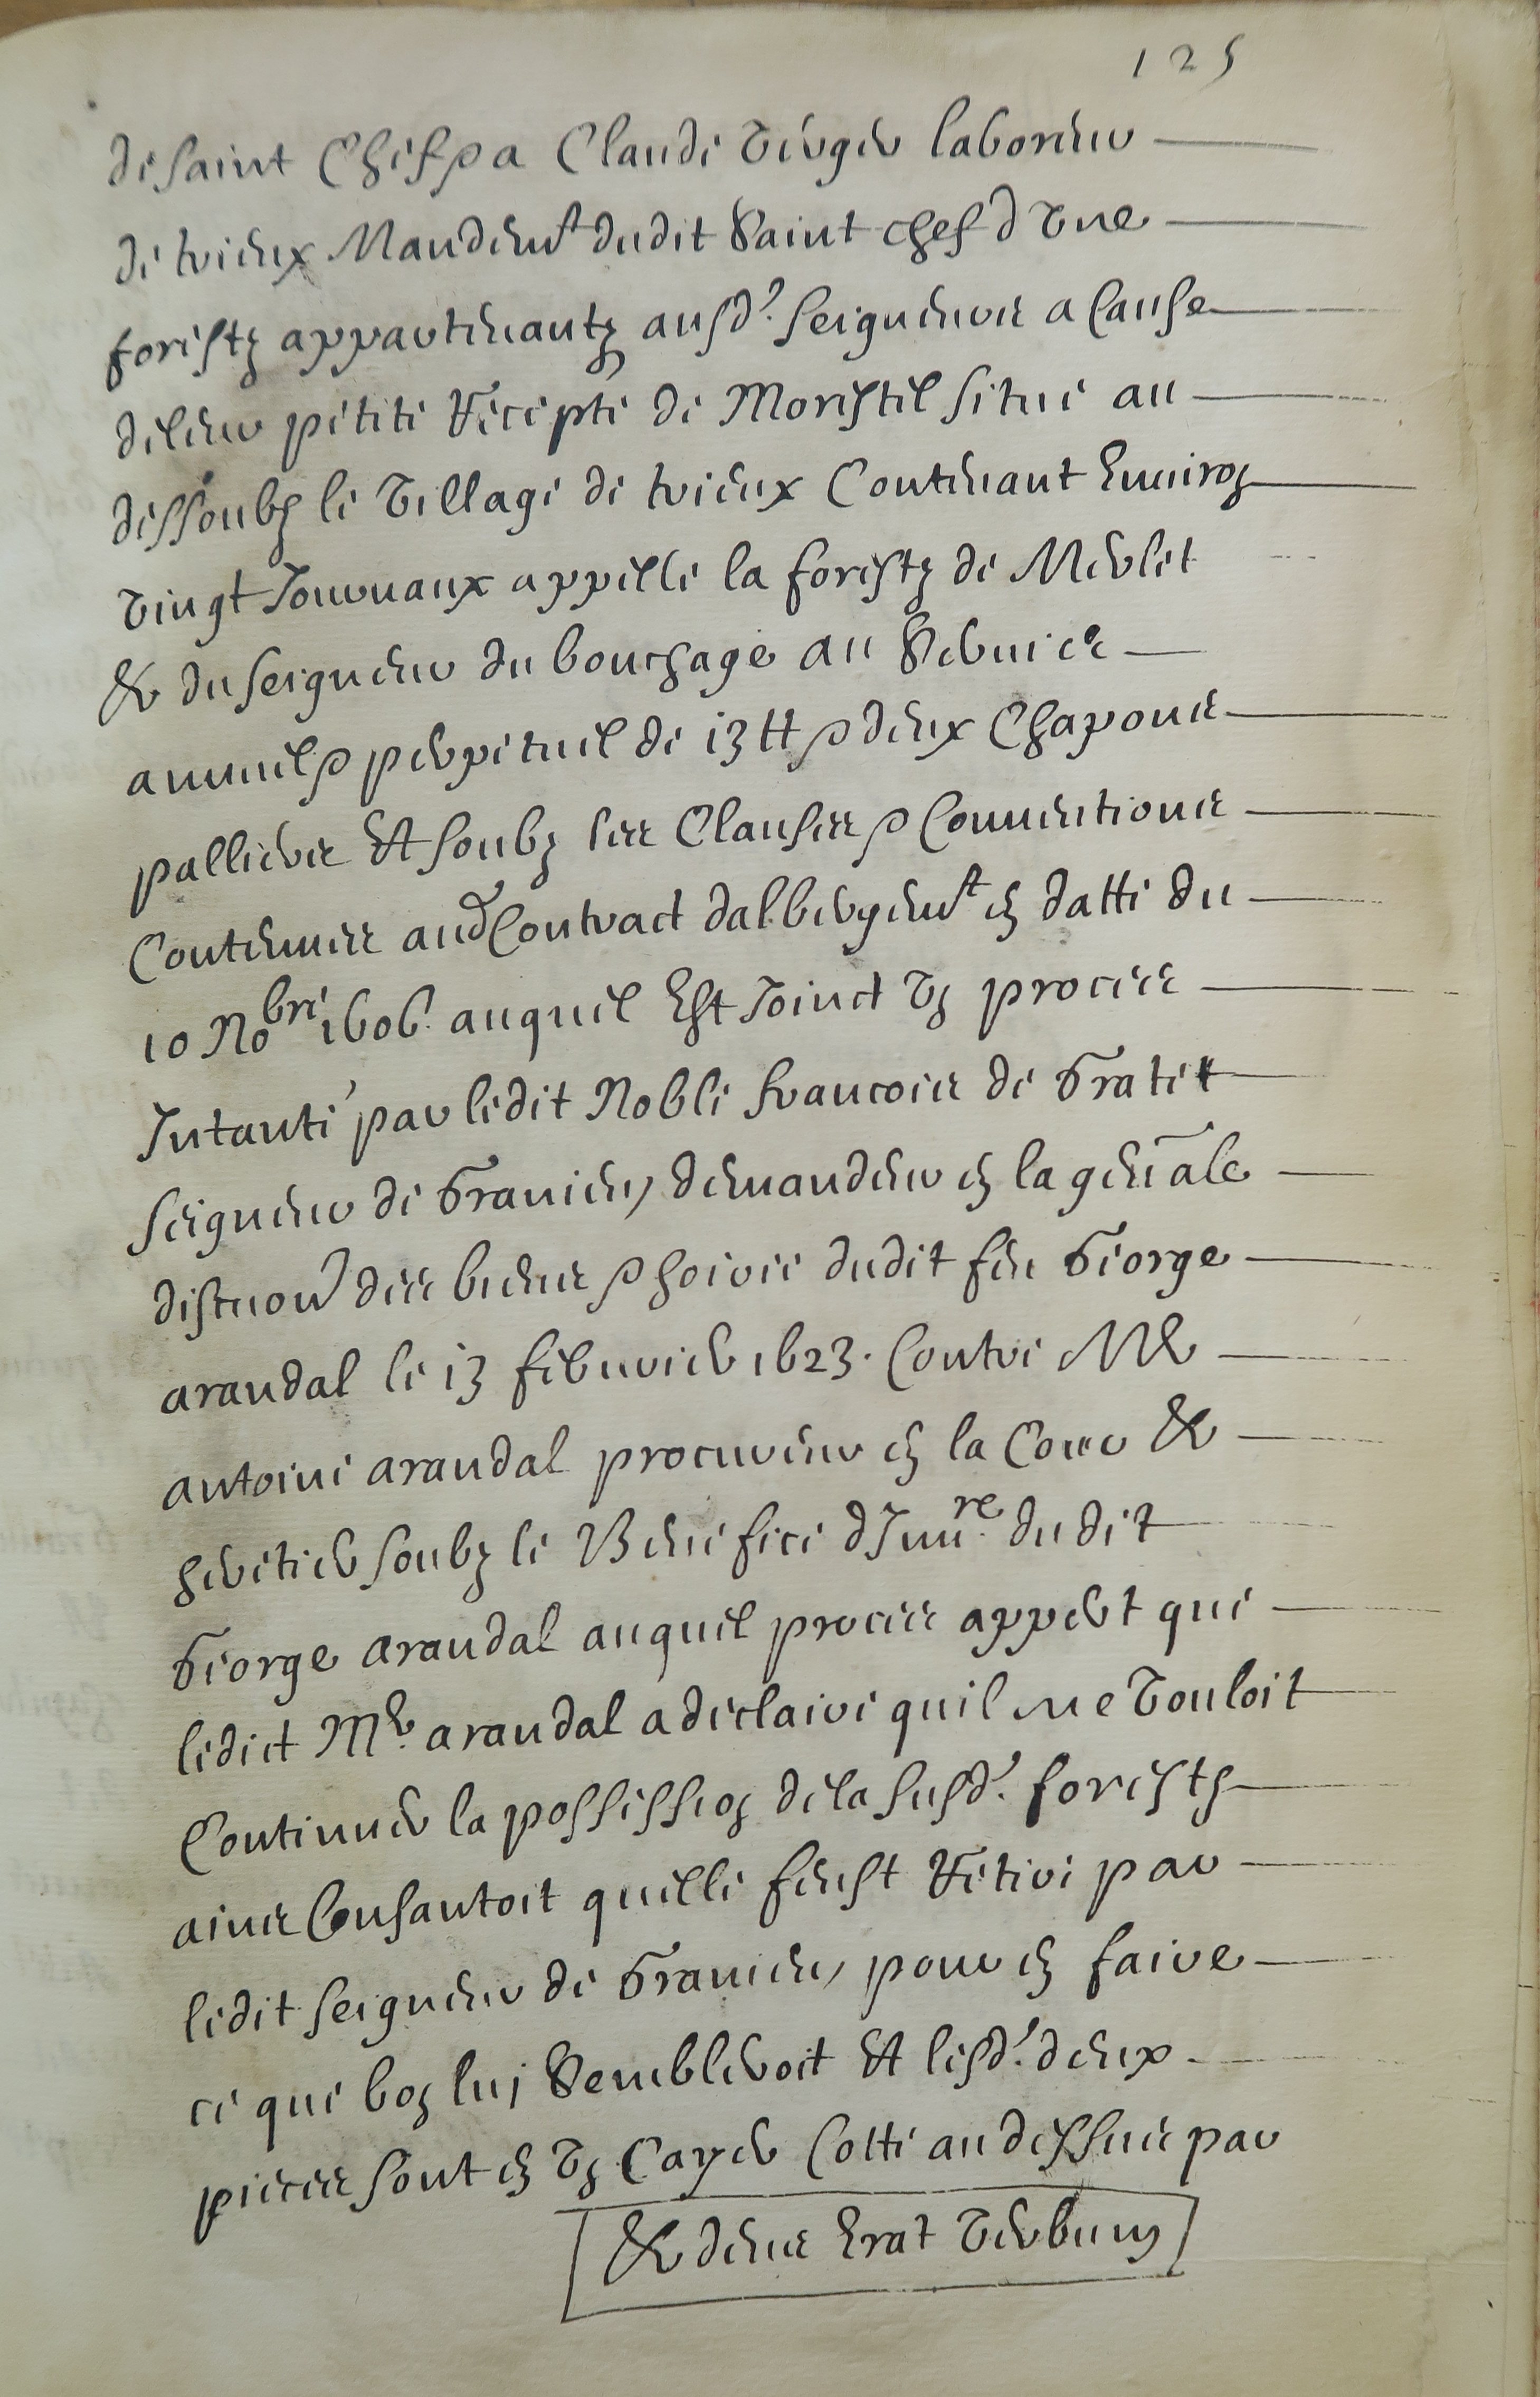 125
de saint Chef & a Claude Verger laboreur
de trieux Mandemt dudit Saint chef d Vne
forestz appartenantz ausd. seigneurs a Cause
deleur petite Recepte de Morestel situe au
dessoubz le Village de trieux Contenant Enuiron
Vingt Journaux appelle la forestz de Merlet
& du seigneur du bouchage au Seruice
annuel & perpetuel de 13 tt & deux Chapons
palliers Et soubz les Clauses & Conuentions
Contenues aud Contract dalbergemt en datte du
10 Nobre 1606. auquel Est Joinct Vn proces
Jntanté par ledit Noble francois de Gratet
seigneur de Granieu, demandeur en la gēnāle
distuon des biens & hoirie dudit feu George
arandal le 13 feburier 1623. Contre Me
antoine arandal procureur en la Cour &
heretier soubz le Benefice dJnure. dudit
George arandal auquel proces appert que
ledict Mr. arandal a declaire quil ne Vouloit
Continuer la possession dela susd. forestz
ains Consantoit quelle feust Retire par
ledit seigneur de Granieu, pour en faire
ce que bon luj Sembleroit Et lesd. deux
pieces sont en Vn Cayer Cotte au dessus par
& deus Erat Verbum